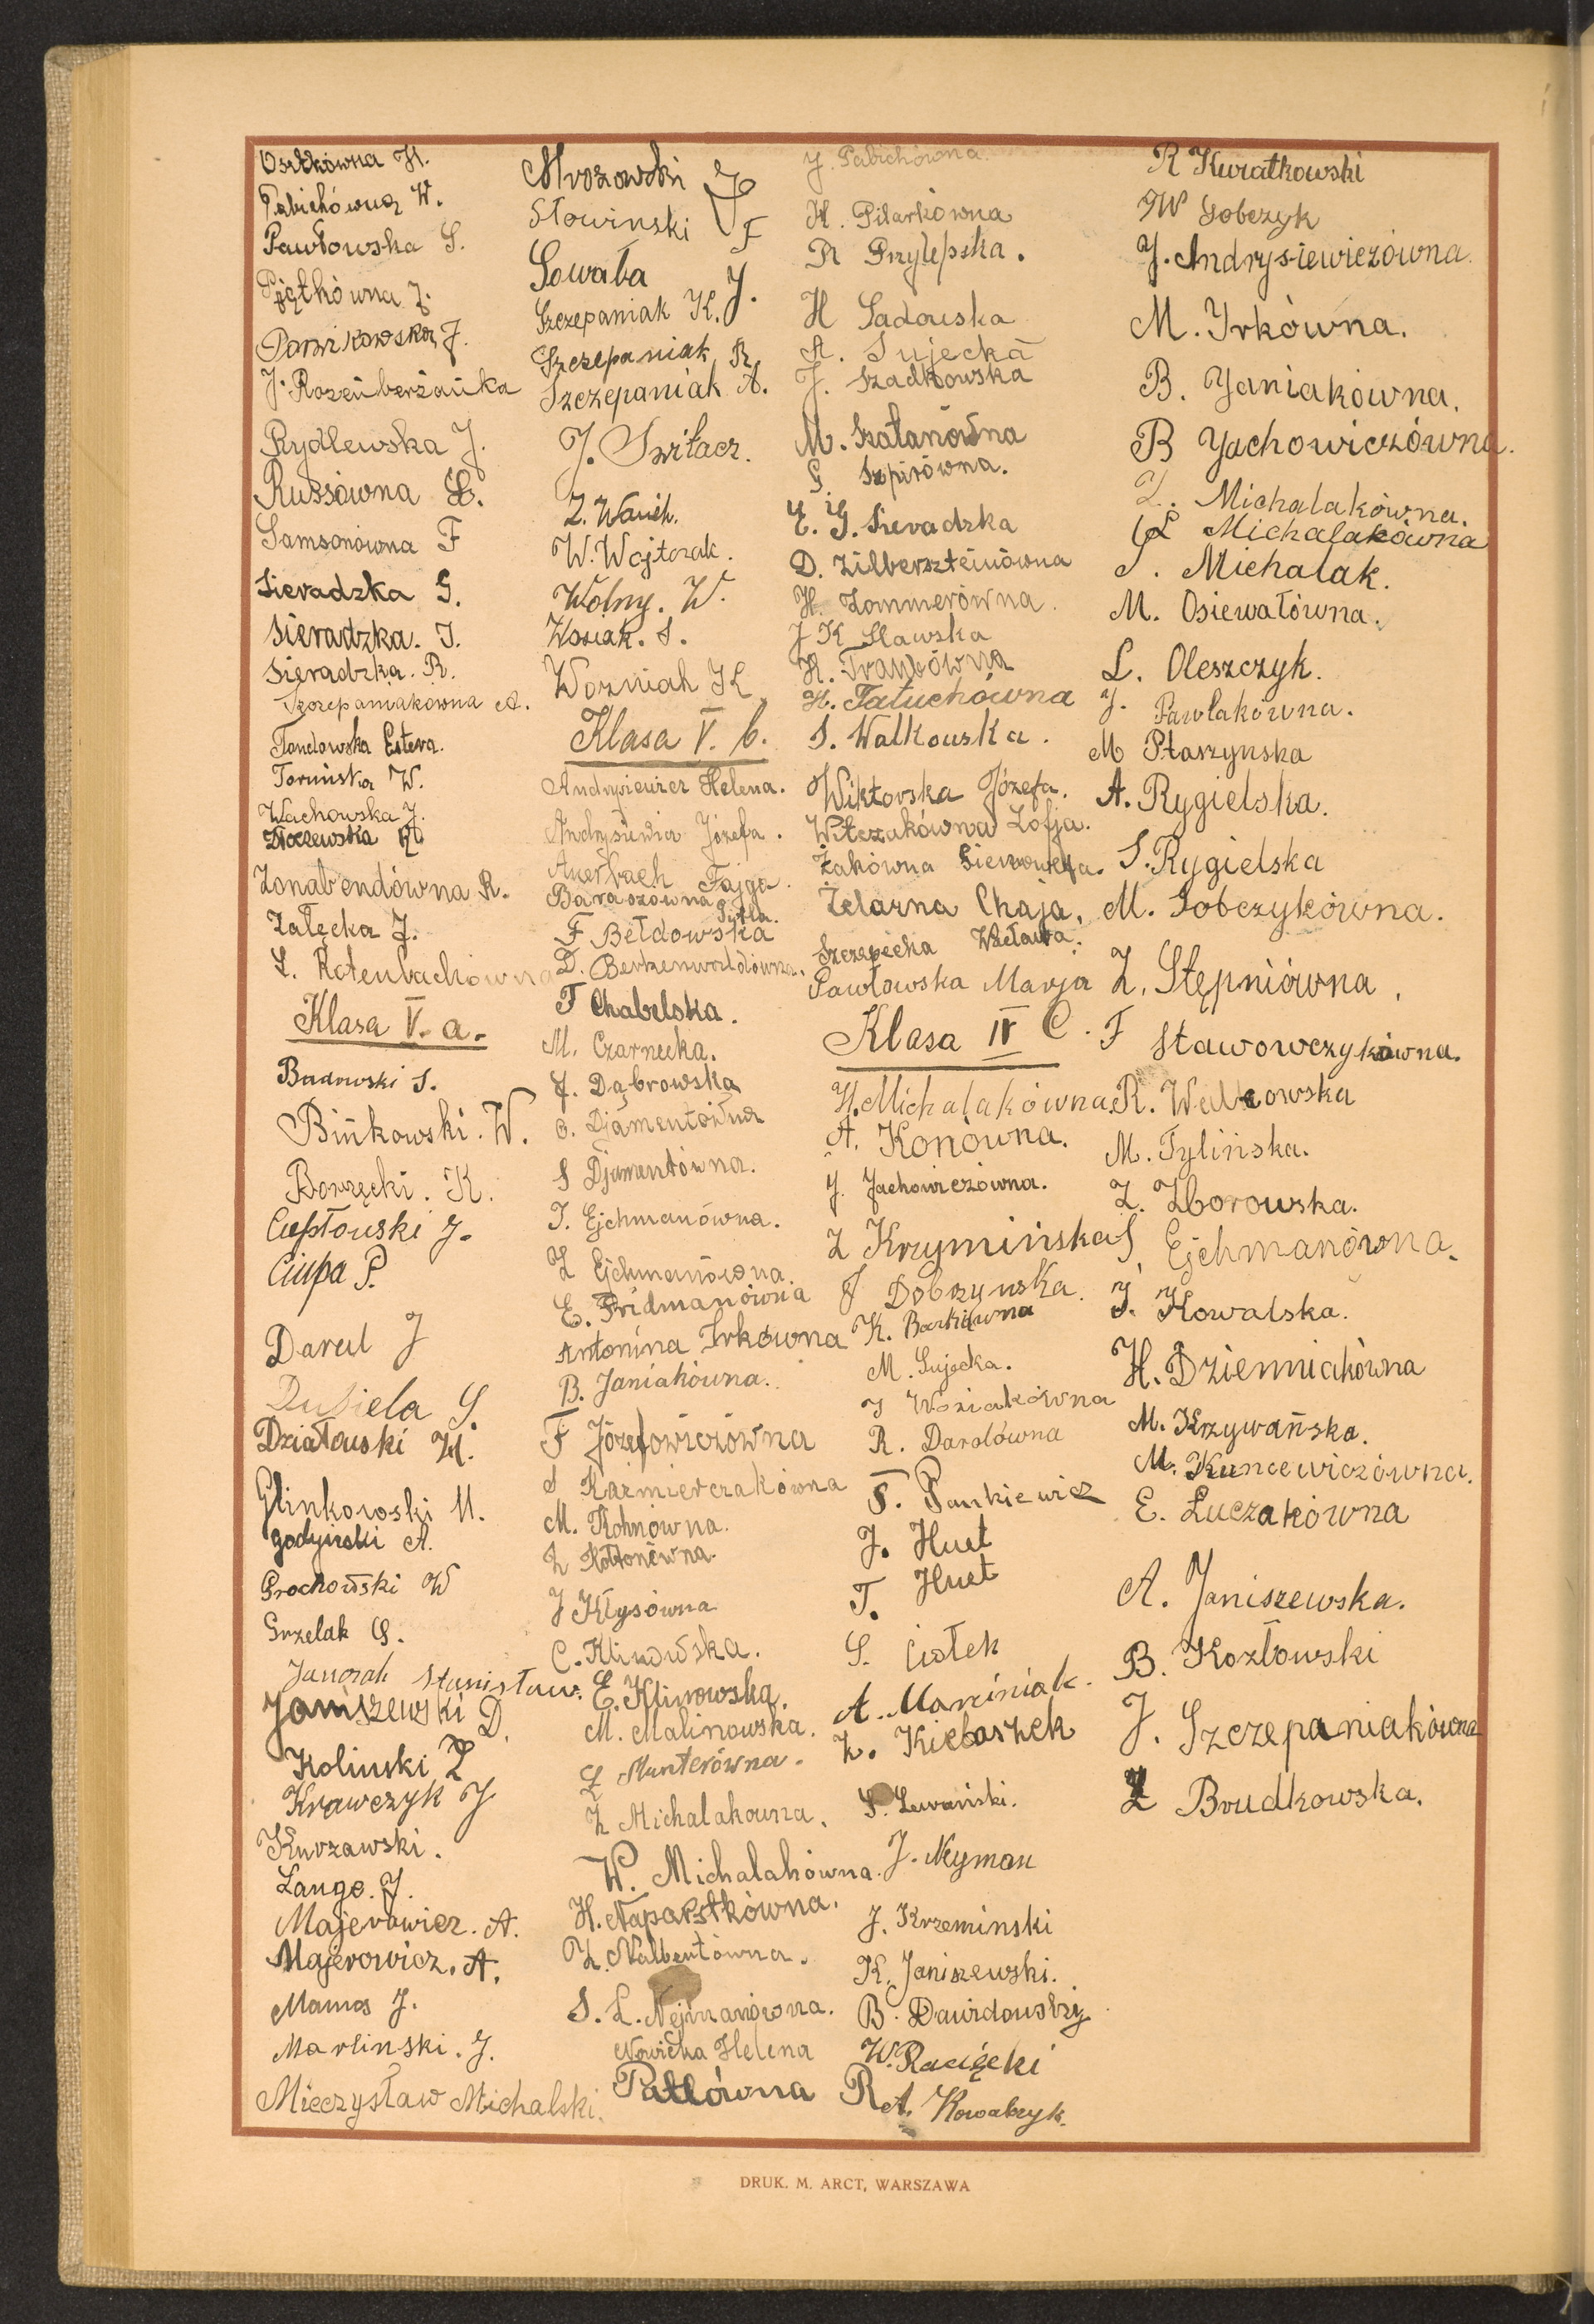 Osełkówna H.
Pabichówna W.
Pawłowska S.
Piątkówna Z.
Porwikowska J.
J. Rozenberżanka
Rydlewska J.
Russówna L.
Samsonówna F
Sieradzka G.
Sieradzka. I.
Sieradzka. R.
Szczepaniakówna A.
Tondowska Estera.
Tormińska W.
Wachowska J.
Złoczewska R
Zonabendówna R.
Załęcka J.
S. Rotenbachówna
Klasa V. a.
Badowski S.
Bińkowski. W.
Borzęcki. K.
Ciepłouski J.
Ciupa P.
Darul J
Dusiela S.
Działouski M.
Glinkowski M.
Godyński A.
Grochowski W
Grzelak G.
Janczak Stanisław.
Janiszewski D.
Kolinski Z
Krawczyk J
Kurzawski.
Lange. J.
Majerowicz. A.
Majerowicz. A.
Mamos J.
Marlinski. J.
Mieczysław Michalski.
Mrozowski J
Słowinski F
Sowała J.
Szczepaniak K.
Szczepaniak R.
Szczepaniak A.
J. Switacz.
Z. Wauch.
W. Wojtczak.
Wolny. W.
Wosiak. S.
Wozniak K
Klasa V. b.
Andrysiewicz Helena.
Andrysiewicz Józefa.
Auerbach Fajga.
Baraszówna Sitla.
F Bełdowska
D. Berkenwaldówna.
F Chabelska.
M. Czarnecka.
J. Dąbrowska
C. Djamentówna
S Djamentówna.
I. Ejchmanówna.
Z Ejchmanówna.
E. Fridmanówna
Antonina Irkówna
B. Janiakówna.
F Józefowiczówna
S Kaźmierczakówna
M. Kohnówna.
Z Kołtonówna.
J Kłysówna
C. Klinowska.
E. Klinowska.
M. Malinowska.
L Munterówna.
Z Michalakówna.
W. Michalakówna.
H. Naparstkówna.
Z. Nalbertówna.
S. L. Nejmanówna.
Nowicka Helena
Patłówna R
J. Pabichówna.
H. Pilarkówna
R Przylepska.
H Sadouska
A. Sujecka
J. Szadkowska
M. Szałanówna
G. Szpirówna.
E. G. Sieradzka
D. Zilberszteinówna
H. Zommerówna.
J K Sławska
K. Trawkówna
H. Tałuchówna
S. Walkouska.
Wiktorska Józefa.
Witczakówna Zofja.
Żakówna Gienowefa.
Żelazna Chaja.
Szczepicka Wacława.
Pawłowska Marja
Klasa IV C.
H. Michalakówna
A. Konówna.
J. Jachowiczówna.
Z Krzymińska
J Dobrzynska.
K. Barkówna
M. Sujecka.
J Woziakówna
R. Darolówna
F. Pankiewicz
J. Huet
T. Huet
S. Cisłek
A. Marciniak.
Z. Kiełbaszek
S. Lewański.
J. Neyman
J. Krzeminski
K. Janiszewski.
B. Dawidouski
W. Racięcki
A. Kowalczyk.
R Kwiatkowski
W Sobczyk
J. Andrysiewiczówna.
M. Irkówna.
B. Janiakówna.
B Jachowiczówna.
Z. Michalakówna.
L Michalakówna
S. Michalak.
M. Osiewałówna.
L. Oleszczyk.
J. Pawlakówna.
M Ptaszynska
A. Rygielska.
S. Rygielska
M. Sobczykówna.
Z. Stępniówna.
F Stawowczykówna.
R. Walkowska
M. Tylińska.
Z. Zborowska.
S Ejchmanówna.
J. Kowalska.
H. Dziemniakówna
M. Krzywańska.
M. Kuncewiczówna.
E. Luczakówna
A. Janiszewska.
B. Kozłowski
J. Szczepaniakówna
Z Brudkowska.
DRUK. M. ARCT, WARSZAWA